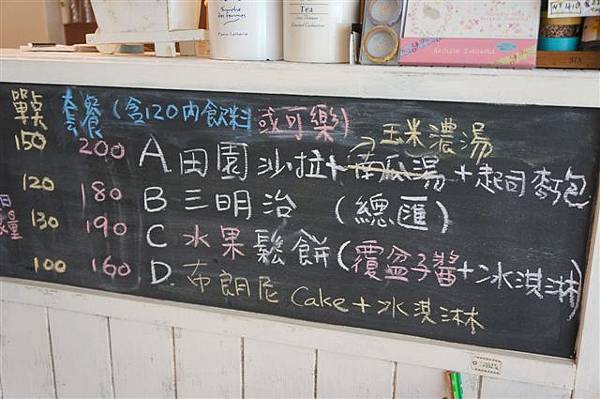 單點 套餐 (含120內飲料或可樂)
玉米濃湯
150 200 A 田園沙拉+南瓜湯+起司麥包
120 180 B 三明治 (總匯)
130 190 C 水果鬆餅(覆盆子醬+冰淇淋)
100 160 D. 布朗尼 Cake+冰淇淋
Tea